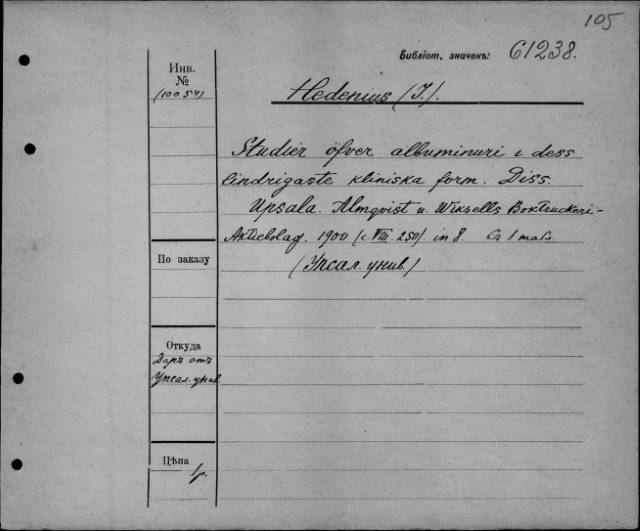 105
Библіот. значекъ: 61238.
Инв.
№
(10054)
Hedenius (I.).
Studier öfver albuminuri i dess
lindrigaste kliniska form. Diss.
Upsala. Almqvist u. Wiksells Boktruckeri-
Aktiebolag. 1900 (c. VIII. 250) in 8. Съ 1 табл.
(Упсал. унив.)
По заказу
Откуда
Даръ отъ
Упсал. унив.
Цѣна
1 р.